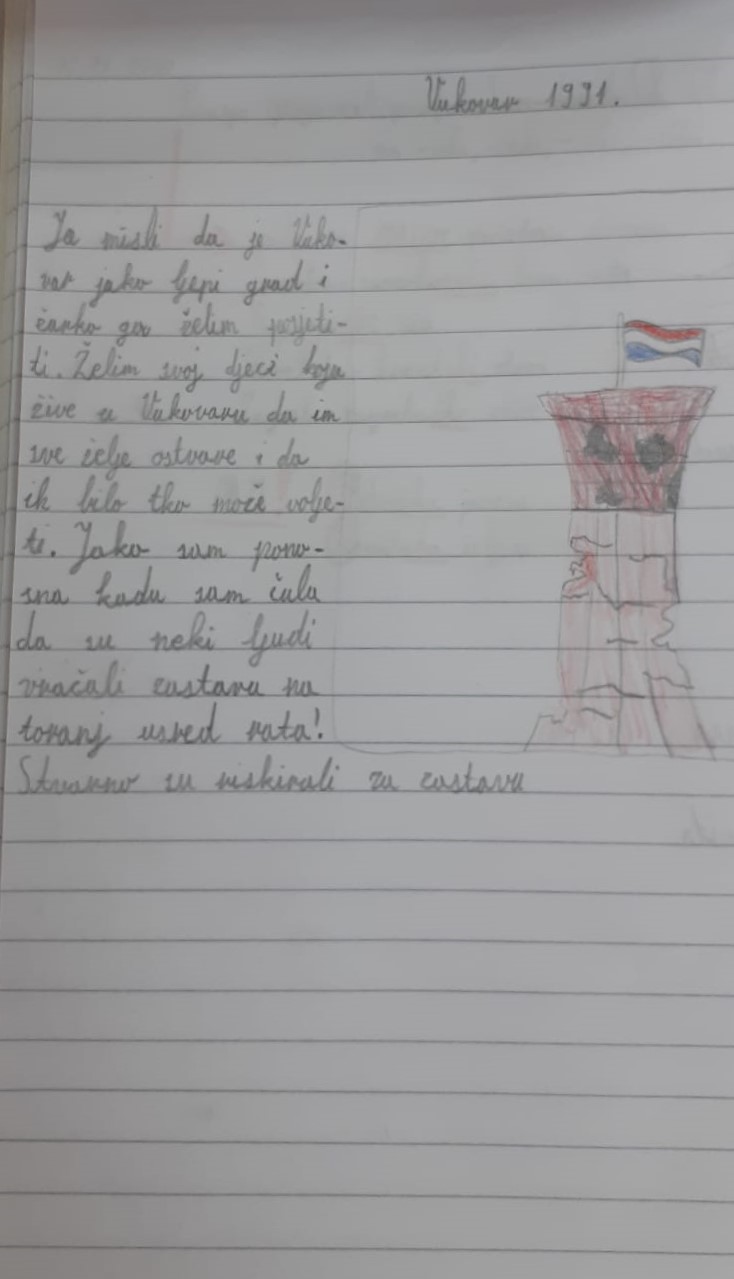 Vukovar 1991.
Ja misli da je Vuko-
var jako ljepi grad i
žarko ga želim posjeti-
ti. Želim svoj djeci koja
žive u Vukovaru da im
sve želje ostvare i da
ih bilo tko može volje-
ti. Jako sam pono-
sna kada sam čula
da su neki ljudi
vračali zastavu na
toranj usred rata!
Stvarno su riskirali za zastavu